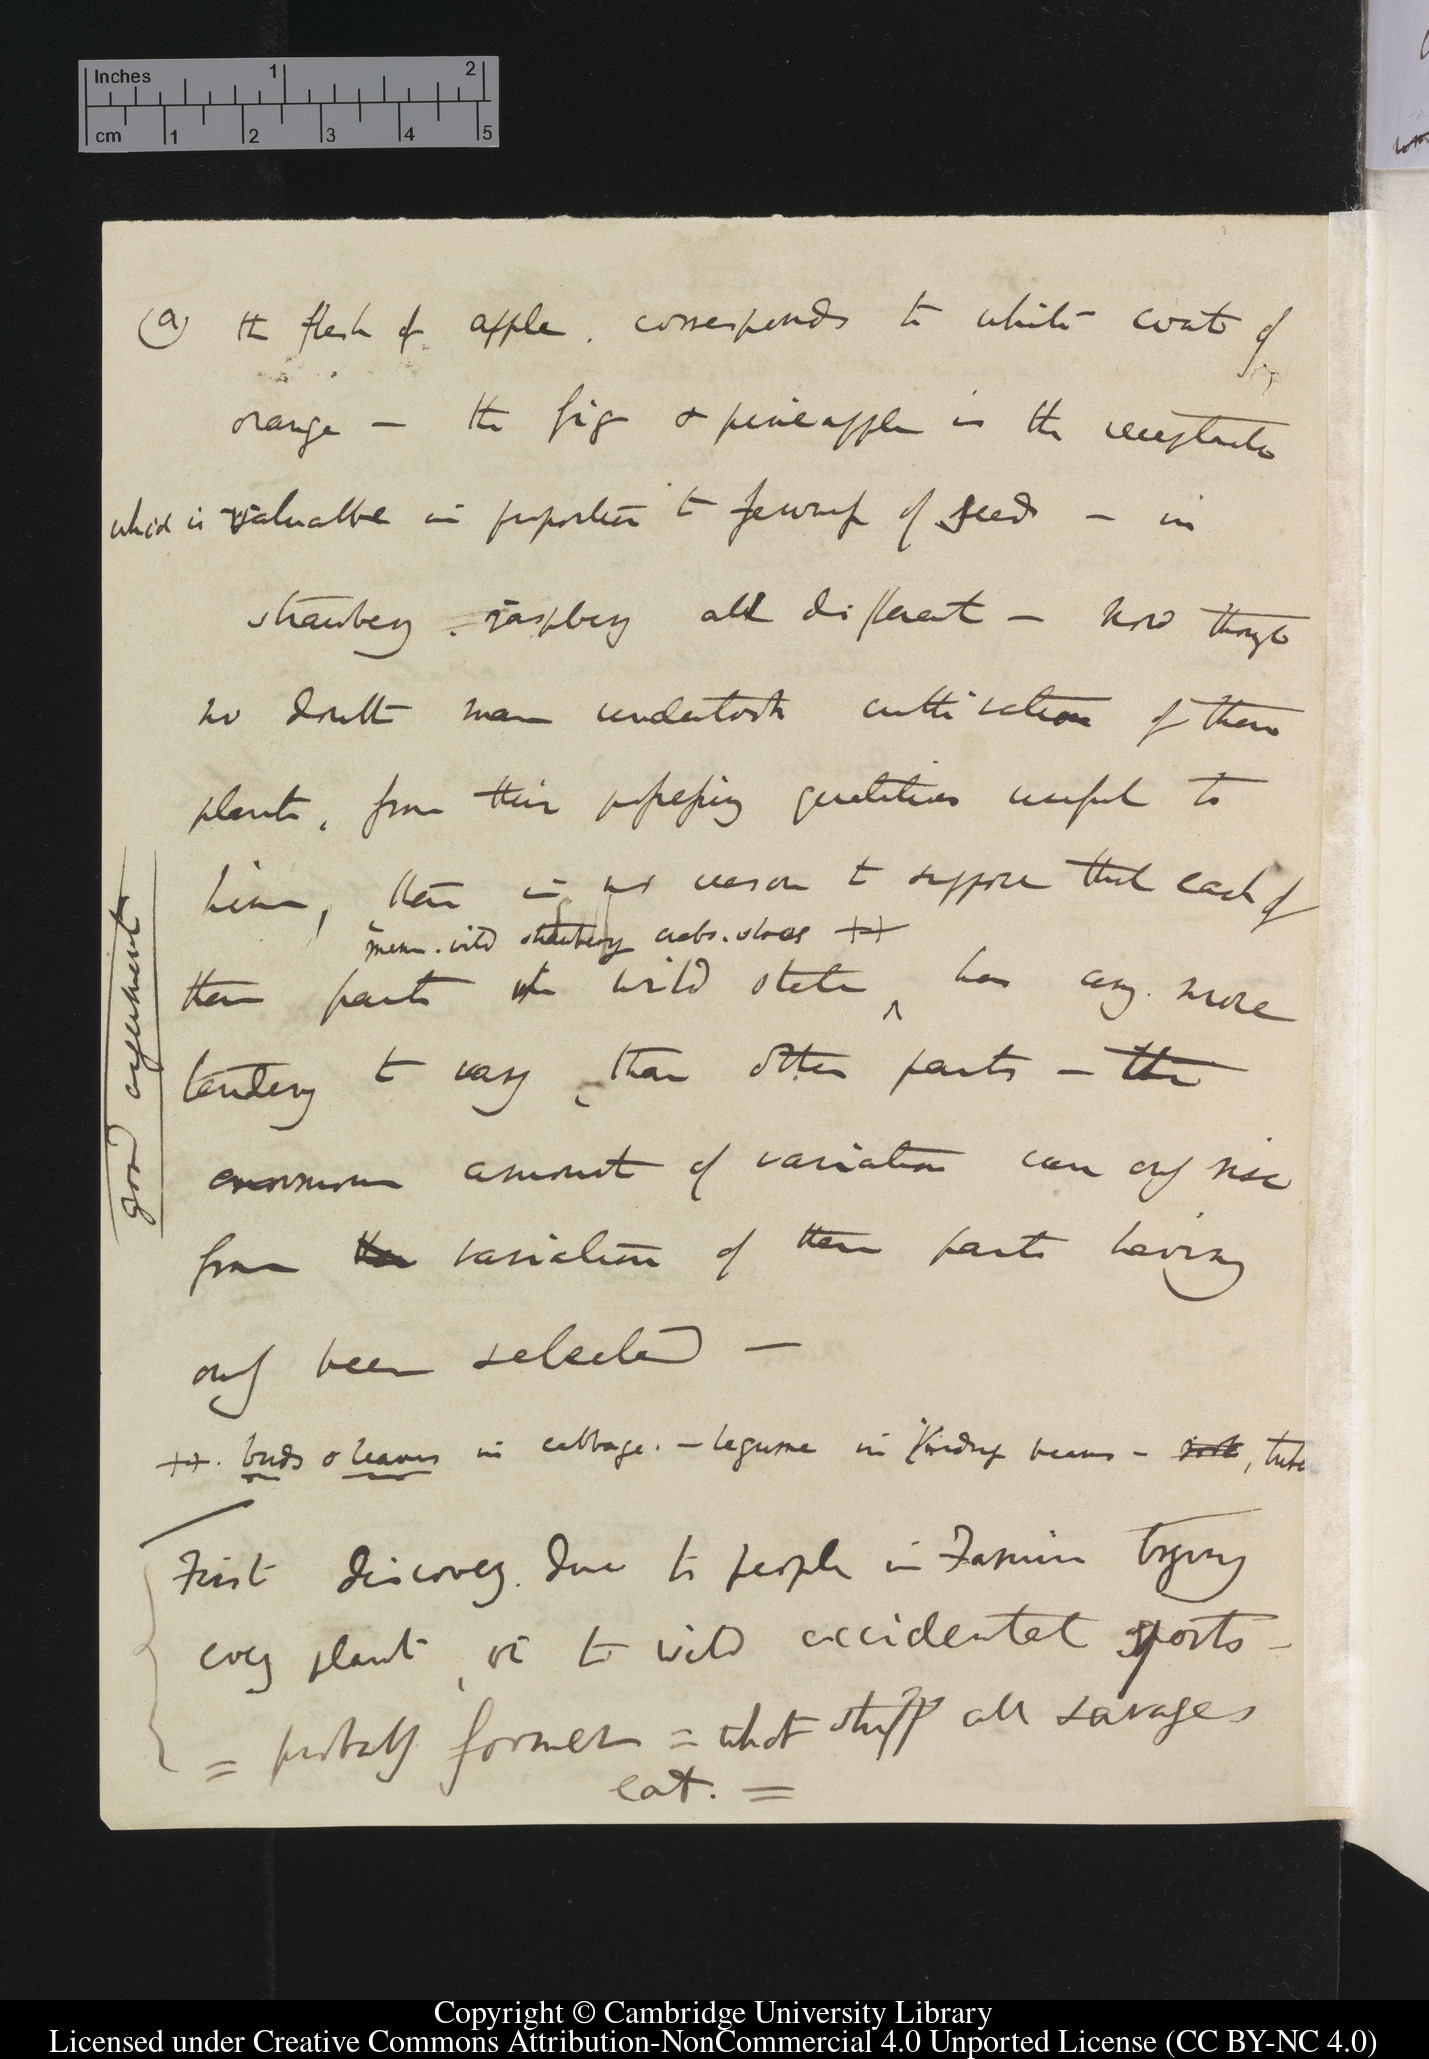 Inches 1 2
cm 1 2 3 4 5
(a) the flesh of apple. corresponds to white coat of
orange — the fig & pineapple is the receptacle
which is valuable in proportion to fewness of seeds — in
strawberry. raspberry all different — Now though
no doubt man undertook cultivation of these
plants, from their possessing qualities useful to
him, there is no reason to suppose that each of
wild strawberry crabs. sloes ++
these parts in wild state, has any more
tendency to vary, than other parts — the
enormous amount of variation can only rise
from the variation of these parts having
only been selected —
good argument
++. buds & leaves in cabbage. — legume in Kidney beans — root, tube
First discovery. due to people in Famine trying
every plant, or to wild accidental sports —
= probably former = what stuff all savages
eat. =
Copyright © Cambridge University Library
Licensed under Creative Commons Attribution-NonCommercial 4.0 Unported License (CC BY-NC 4.0)